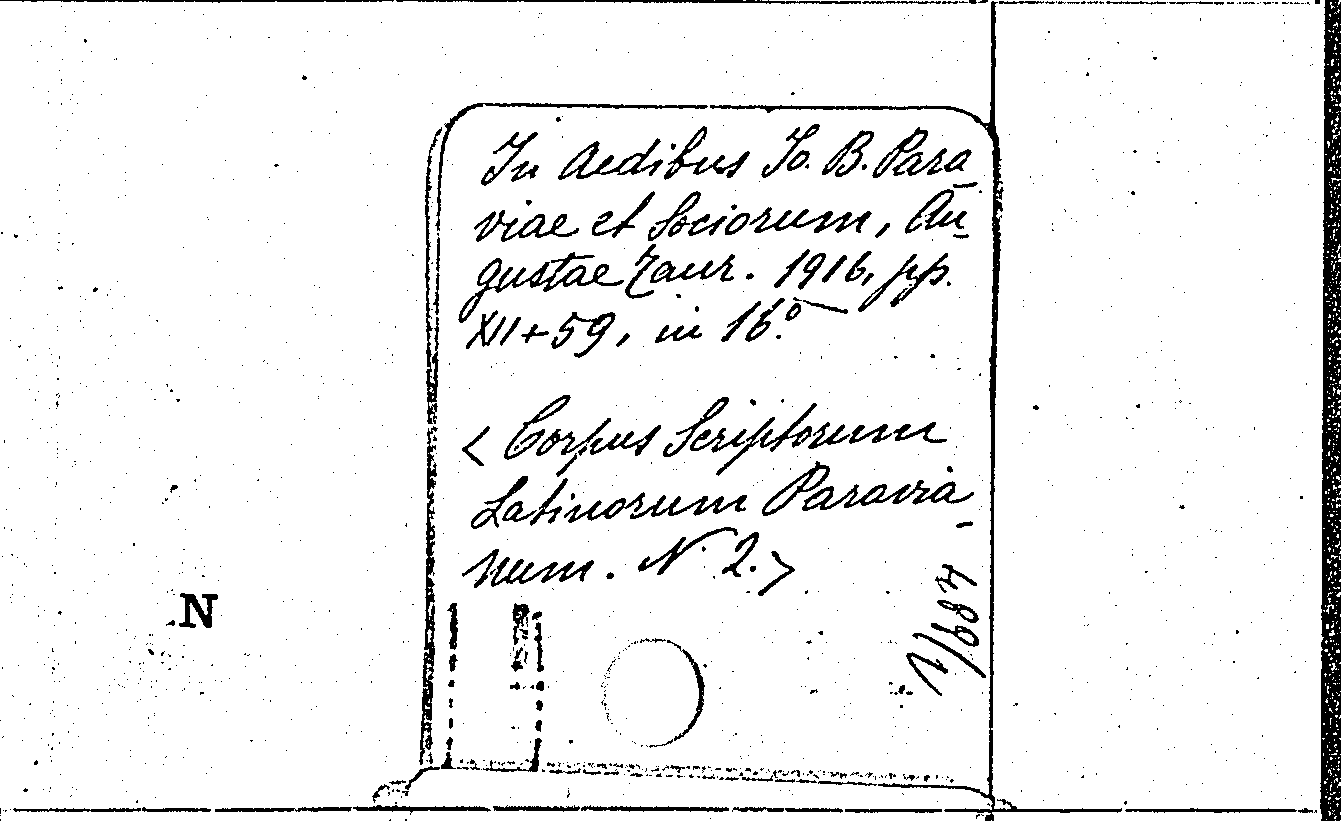 In Aedibus Io. B. Para-
viae et Sociorum, Au-
gustae Taur. 1916, pp.
XII+59, in 16º.
< Corpus Scriptorum
Latinorum Paravia-
num. N. 2.>
N